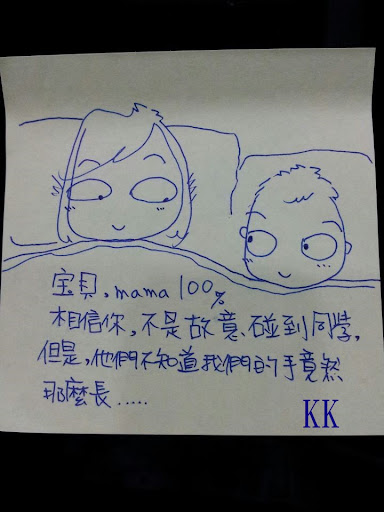 宝貝,mama 100%
相信你,不是故意碰到同学,
但是,他們不知道我們的手竟然
那麼長.....
KK